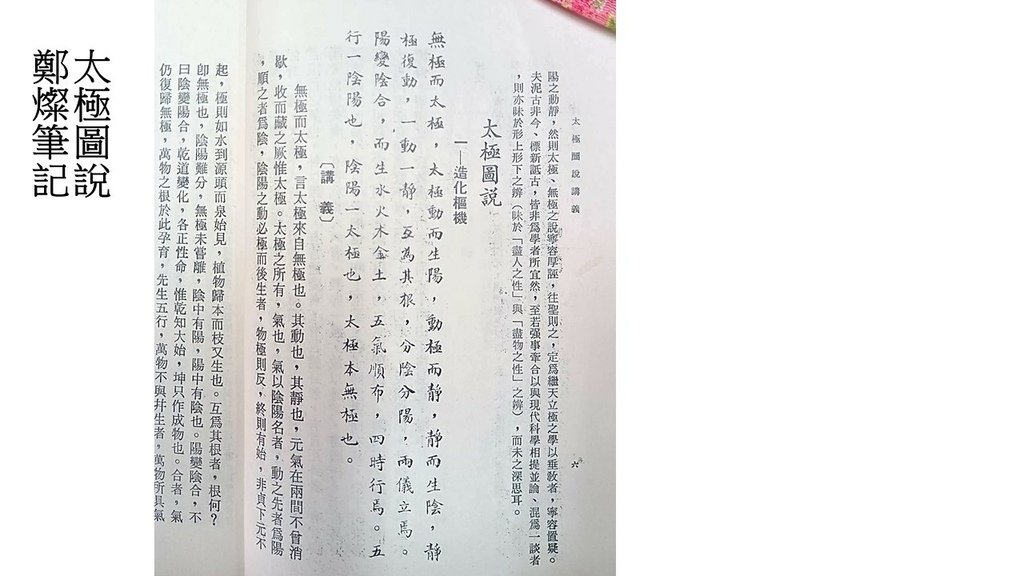 太極圖說
鄭燦筆記
太極圖說講義
六
陽之動靜，然則太極、無極之說寧容厚誣，往聖則之，定爲繼天立極之學以垂敎者，寧容置疑。
夫泥古非今、標新詆古，皆非爲學者所宜然，至若强事牽合以與現代科學相提並論、混爲一談者
，則亦昧於形上形下之辨（昧於「盡人之性」與「盡物之性」之辨），而未之深思耳。
太極圖說
一—造化樞機
無極而太極，太極動而生陽，動極而靜，靜而生陰，靜
極復動，一動一靜，互為其根，分陰分陽，兩儀立焉。
陽變陰合，而生水火木金土，五氣順布，四時行焉。五
行一陰陽也，陰陽一太極也，太極本無極也。
〔講義〕
無極而太極，言太極來自無極也。其動也，其靜也，元氣在兩間不曾消
歇，收而藏之厥惟太極。太極之所有，氣也，氣以陰陽名者，動之先者爲陽
，順之者爲陰，陰陽之動必極而後生者，物極則反，終則有始，非貞下元不
起，極則如水到源頭而泉始見，植物歸本而枝又生也。互爲其根者，根何？
卽無極也，陰陽難分，無極未嘗離，陰中有陽，陽中有陰也。陽變陰合，不
曰陰變陽合，乾道變化，各正性命，惟乾知大始，坤只作成物也。合者，氣
仍復歸無極，萬物之根於此孕育，先生五行，萬物不與幷生者，萬物所具氣